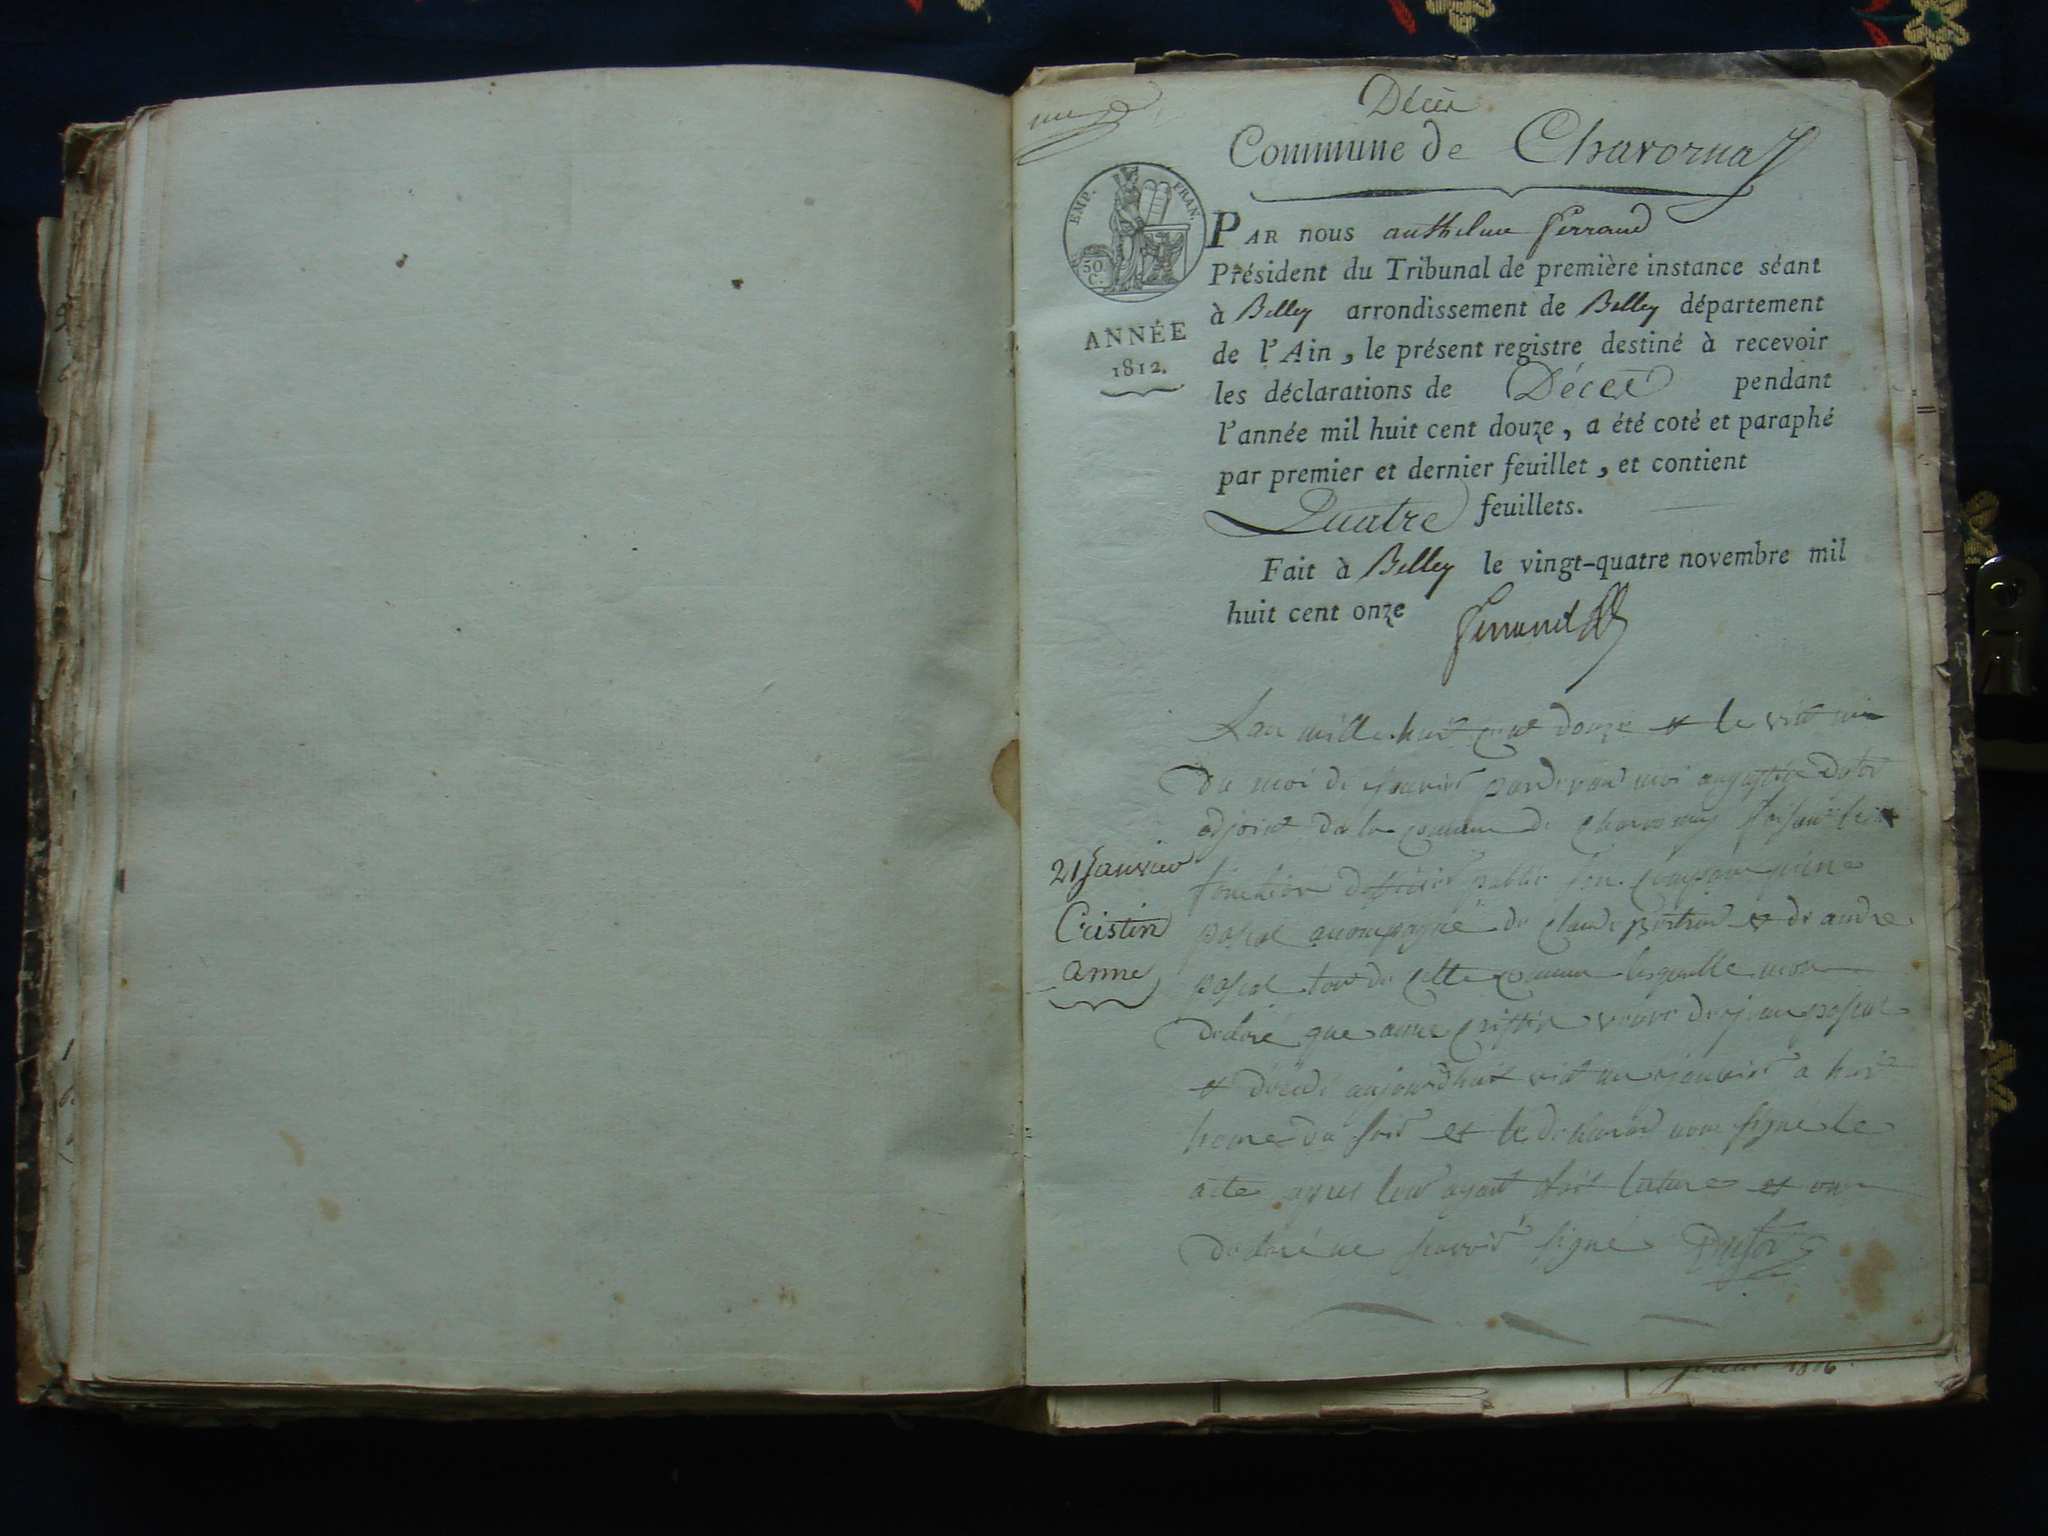 Décès
Commune de Chavornay
EMP. FRAN.
50 C.
ANNÉE
1812.
PAR nous anthelme ferrand
Président du Tribunal de première instance séant
à Belley arrondissement de Belley département
de l'Ain, le présent registre destiné à recevoir
les déclarations de Décès pendant
l'année mil huit cent douze, a été coté et paraphé
par premier et dernier feuillet, et contient
Quatre feuillets.
Fait à Belley le vingt-quatre novembre mil
huit cent onze
ferrand
21 Janvier
Cristin
anne
Lan mille huit cent douze et le vint un
du moi de janvier par devant moi
adjoint de la commune de chavornay faisant les
fonction public
pascal acompagné de claude et de andre
pascal tous de cette commune lesquelle mon
declaré que anne cristin veuve de jean pascal
et décédé aujourdhuit vint un janvier a huit
heure du soir et le declarant non signe le
acte apres leur ayant fait lecture et on
declaré ne savoir signé
1816